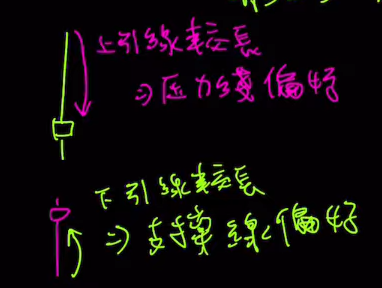 上引線較長
⇒压力线偏好
下引線較長
⇒支撐線偏好